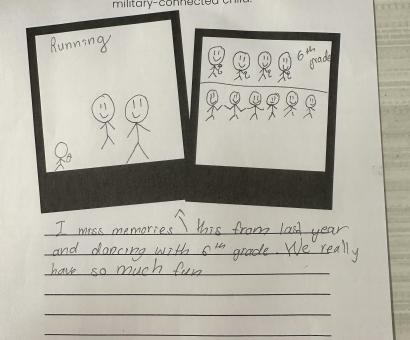 military-connected child.
Running
6th grade
I miss memories ^ this from last year
and dancing with 6th grade. We really
have so much fun